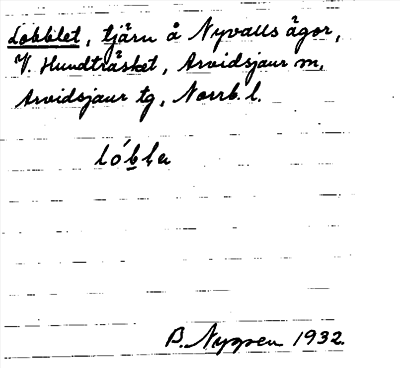 Lobblet, tjärn å Nyvalls ägor,
V. Hundträsket, Arvidsjaur sn,
Arvidsjaur tg, Norrb. l.
B. Nygren 1932.